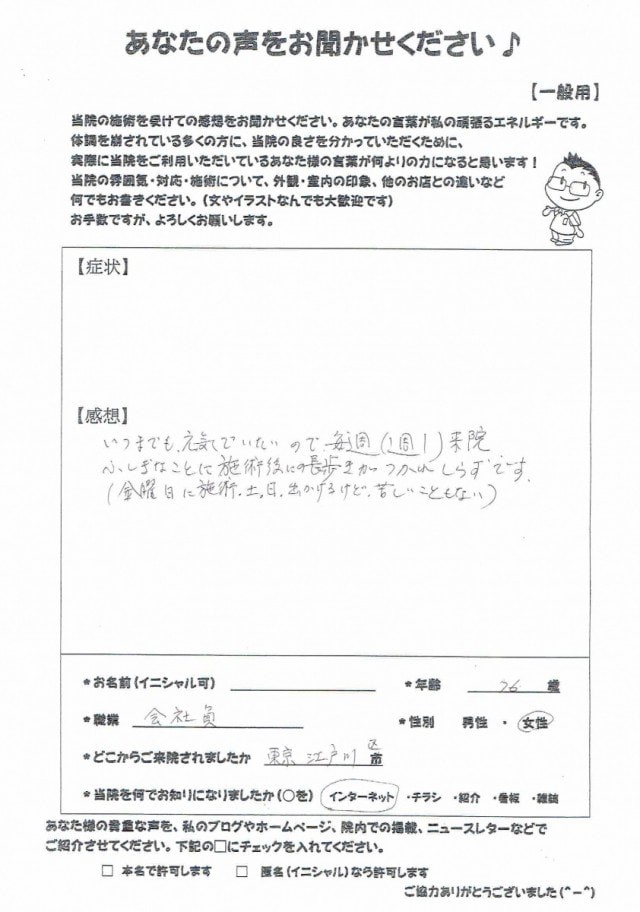 あなたの声をお聞かせください♪
【一般用】
当院の施術を受けての感想をお聞かせください。あなたの言葉が私の頑張るエネルギーです。
体調を崩されている多くの方に、当院の良さを分かっていただくために、
実際に当院をご利用いただいているあなた様の言葉が何よりの力になると思います！
当院の雰囲気・対応・施術について、外観・室内の印象、他のお店との違いなど
何でもお書きください。（文やイラストなんでも大歓迎です）
お手数ですが、よろしくお願いします。
【症状】
【感想】
いつまでも、元気でいたいので、毎週（1週1）来院
ふしぎなことに施術後にの長歩きがつかれしらずです。
（金曜日に施術、土、日、出かけるけど、苦しいこともない）
*お名前（イニシャル可） *年齢 76 歳
*職業 会社員 *性別 男性 ・ 女性
*どこからご来院されましたか 東京 江戸川 区 市
*当院を何でお知りになりましたか（○を） インターネット ・チラシ ・紹介 ・看板 ・雑誌
あなた様の貴重な声を、私のブログやホームページ、院内での掲載、ニュースレターなどで
ご紹介させてください。下記の□にチェックを入れてください。
□ 本名で許可します □ 匿名（イニシャル）なら許可します
ご協力ありがとうございました（^－^）